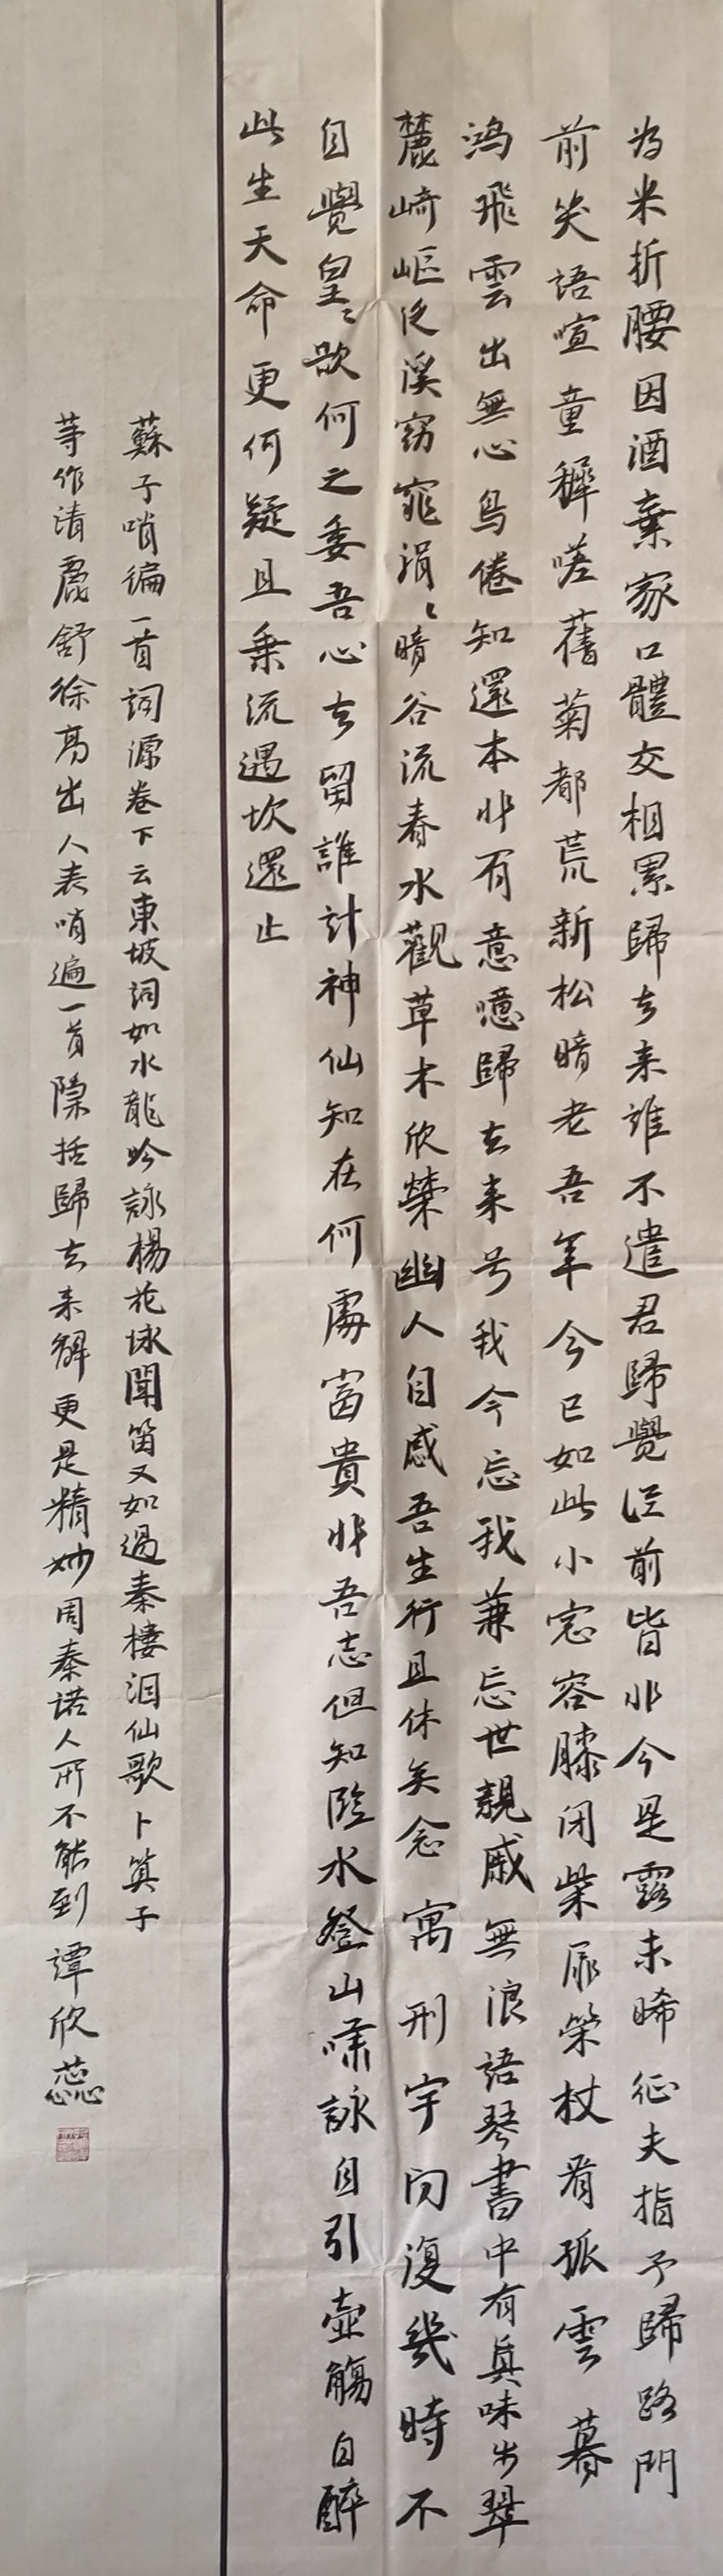 为米折腰因酒棄家口體交相累歸去来誰不遣君歸覺從前皆非今是露未晞征夫指予歸路門
前笑語喧童穉嗟舊菊都荒新松暗老吾年今已如此小窓容膝闭柴扉策杖看孤雲暮
鸿飛雲出無心鳥倦知還本非有意噫歸去来兮我今忘我兼忘世親戚無浪語琴書中有真味步翠
麓崎嶇泛溪窈窕涓〻暗谷流春水觀草木欣榮幽人自感吾生行且休矣念寓形宇内復幾時不
自覺皇〻欲何之委吾心去留誰計神仙知在何處富貴非吾志但知臨水登山嘯詠自引壺觴自醉
此生天命更何疑且乗流遇坎還止
蘇子哨徧一首詞源卷下云東坡詞如水龍吟詠楊花咏聞笛又如過秦樓洞仙歌卜算子
等作清麗舒徐高出人表哨遍一首隱括歸去来辭更是精妙周秦諸人所不能到譚欣蕊